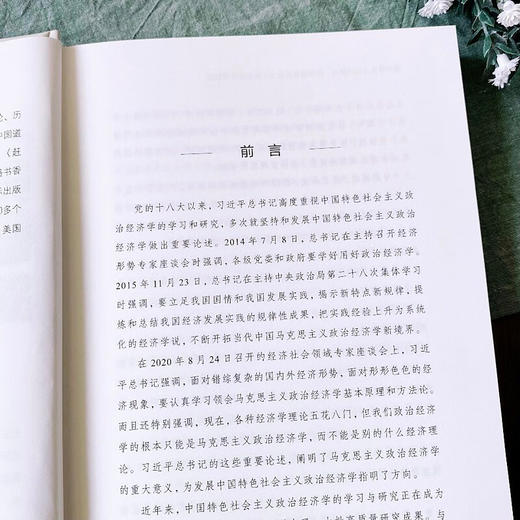 论、历
中国道
《赶
图书香
示出版
0多个
美国
前言
党的十八大以来，习近平总书记高度重视中国特色社会主义政
治经济学的学习和研究，多次就坚持和发展中国特色社会主义政治
经济学做出重要论述。2014年7月8日，总书记在主持召开经济
形势专家座谈会时强调，各级党委和政府要学好用好政治经济学。
2015年11月23日，总书记在主持中央政治局第二十八次集体学习
时强调，要立足我国国情和我国发展实践，揭示新特点新规律，提
炼和总结我国经济发展实践的规律性成果，把实践经验上升为系统
化的经济学说，不断开拓当代中国马克思主义政治经济学新境界。
在2020年8月24日召开的经济社会领域专家座谈会上，习近
平总书记强调，面对错综复杂的国内外经济形势，面对形形色色的经
济现象，要认真学习领会马克思主义政治经济学基本原理和方法论。
而且还特别强调，现在，各种经济学理论五花八门，但我们政治经济
学的根本只能是马克思主义政治经济学，而不能是别的什么经济理
论。习近平总书记的这些重要论述，阐明了马克思主义政治经济学
的重大意义，为发展中国特色社会主义政治经济学指明了方向。
近年来，中国特色社会主义政治经济学的学习与研究正在成为
高质量研究成果。与